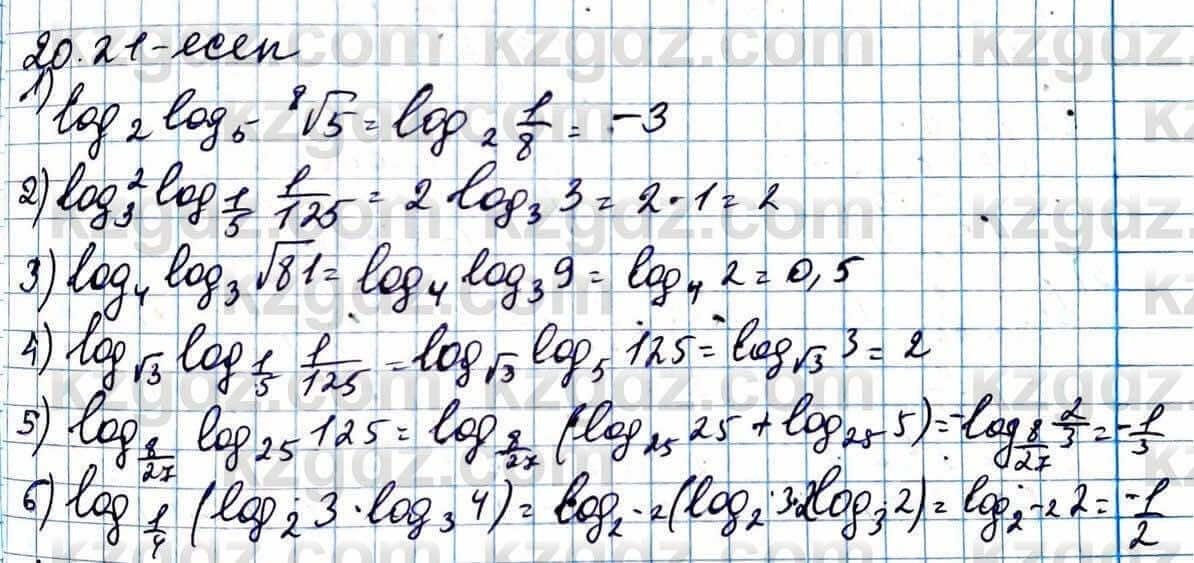 20.21-есеп
1) log₂ log₅ ⁸√5 = log₂ 1/8 = -3
2) log₃² log_{1/5} 1/125 = 2 log₃ 3 = 2·1 = 2
3) log₄ log₃ √81 = log₄ log₃ 9 = log₄ 2 = 0,5
4) log_{√3} log_{1/5} 1/125 = log_{√3} log₅ 125 = log_{√3} 3 = 2
5) log_{8/27} log₂₅ 125 = log_{8/27} (log₂₅ 25 + log₂₅ 5) = -log_{8/27} 2/3 = -1/3
6) log_{1/4} (log₂ 3 · log₃ 4) = log_{2^{-2}} (log₂ 3·2log₃ 2) = log_{2^{-2}} 2 = -1/2